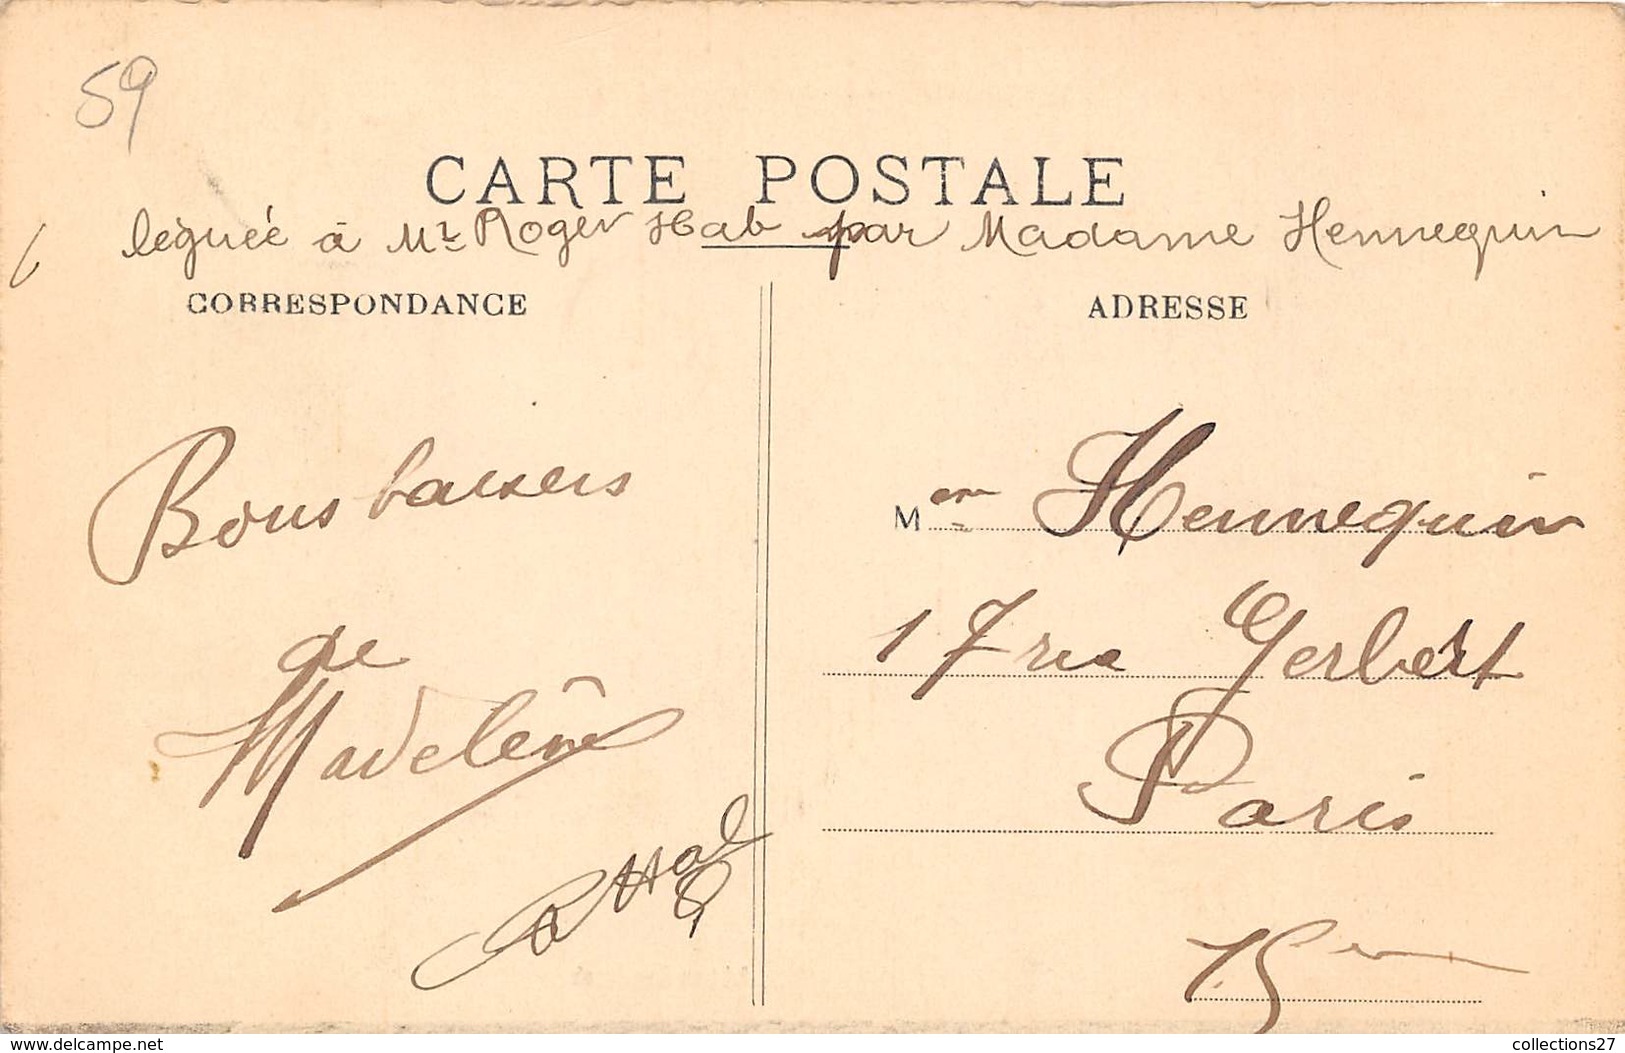 59
CARTE POSTALE
léguée à Mr Roger Hab par Madame Hennequin
CORRESPONDANCE
Bons baisers
de
Madelène
R Hab
ADRESSE
Mme Hennequin
17 rue Gerbert
Paris
15em
delcampe.net
collections27